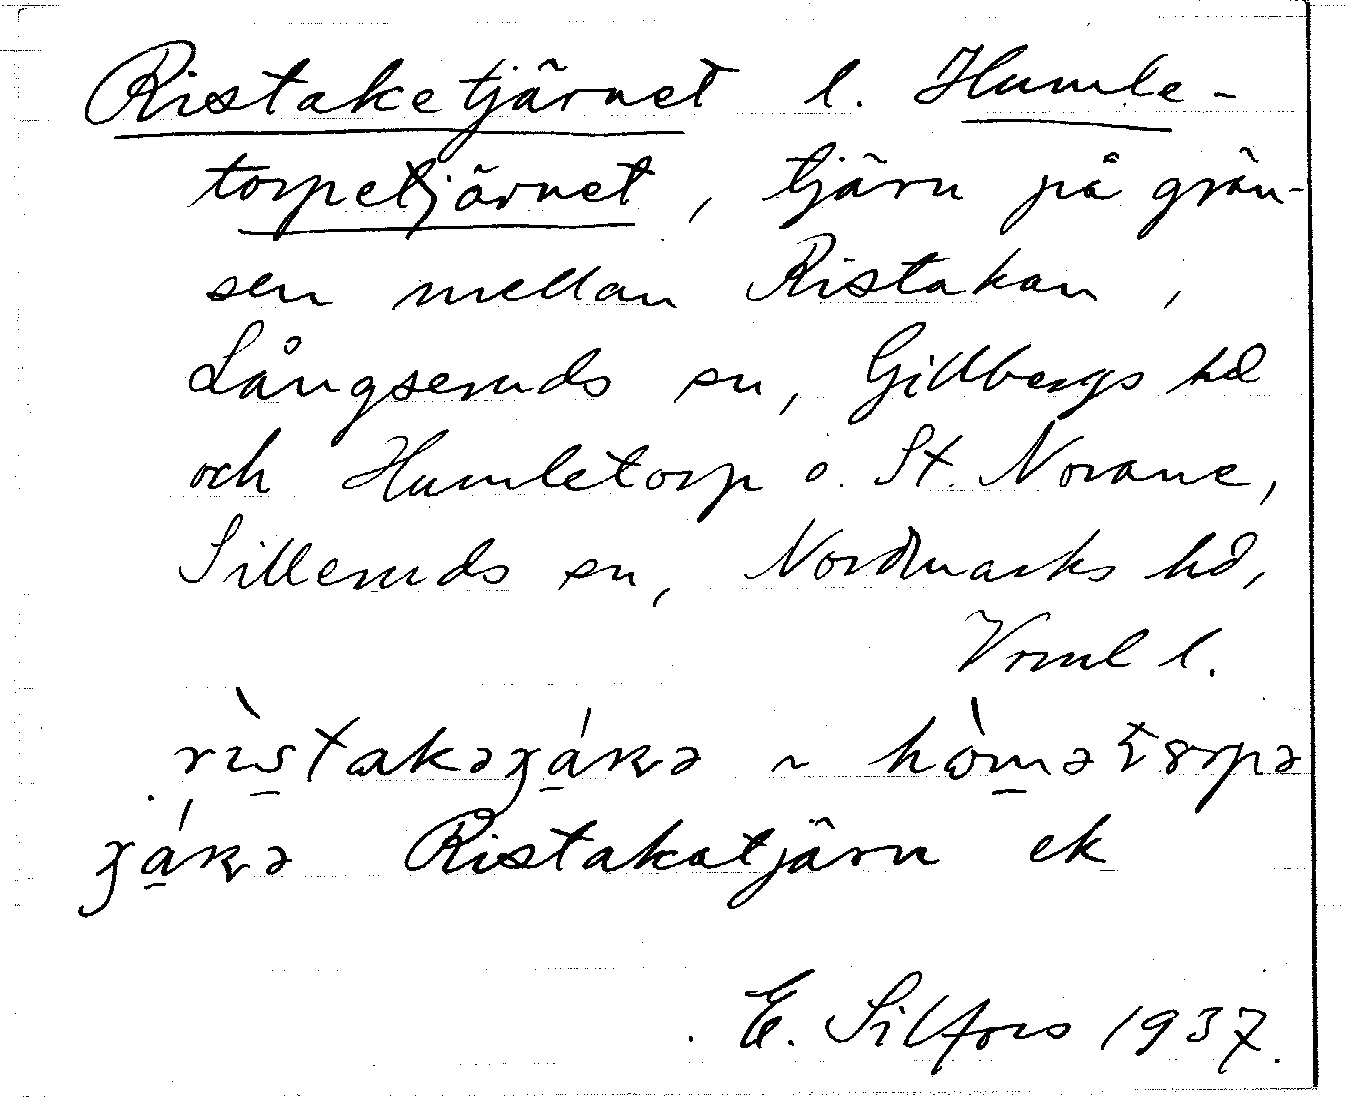 Ristaketjärnet l. Humle-
torpetjärnet, tjärn på grän-
sen mellan Ristakan,
Långseruds sn, Gillbergs hd
och Humletorp o. St. Norane,
Silleruds sn, Nordmarks hd,
Vrml l.
Ristakatjärn ek
E. Silfors 1937.